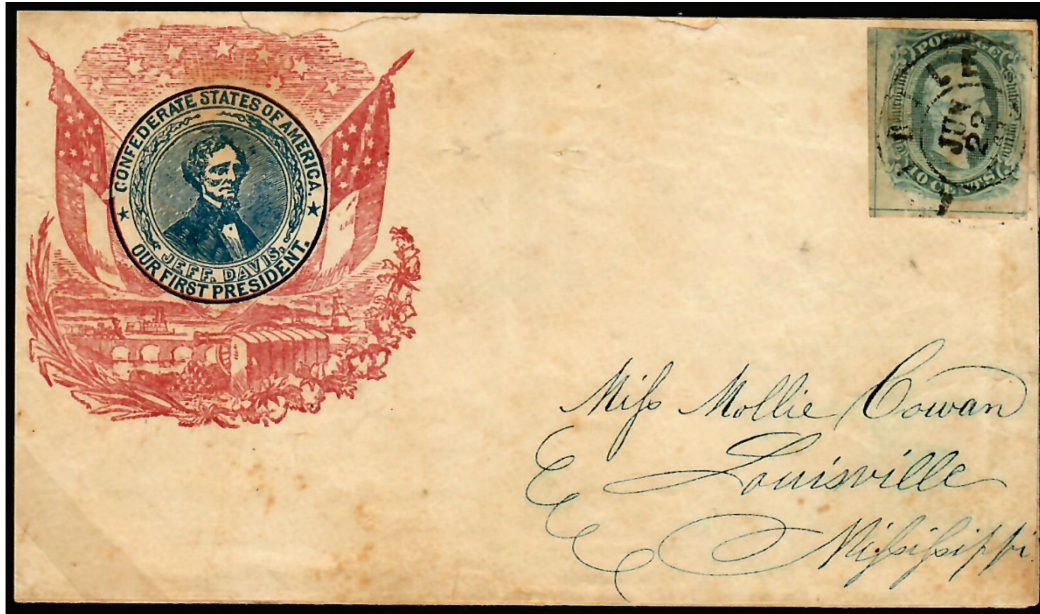 CONFEDERATE STATES OF AMERICA.
JEFF. DAVIS.
OUR FIRST PRESIDENT.
POSTAGE
JUN
22
Miſs Mollie Cowan
Louisville
Miſsiſsippi